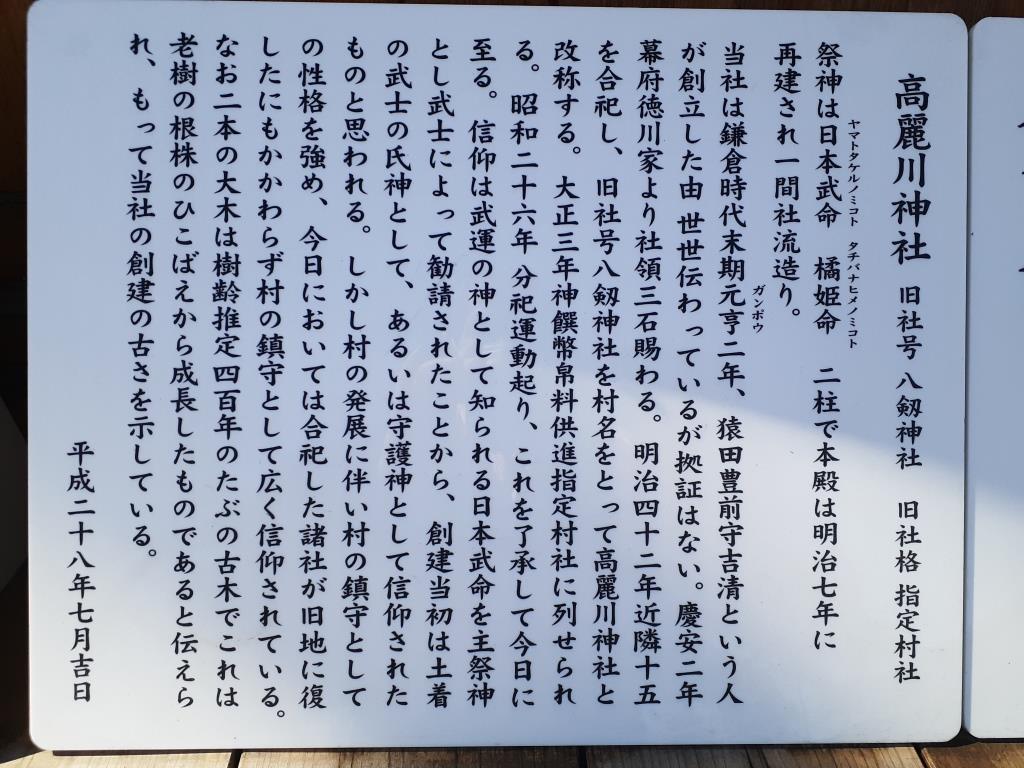 高麗川神社 旧社号 八剱神社 旧社格 指定村社
祭神は日本武命 橘姫命 二柱で本殿は明治七年に
ヤマトタケルノミコト タチバナヒメノミコト
再建され一間社流造り。
当社は鎌倉時代末期元亨二年、猿田豊前守吉清という人
ガンポウ
が創立した由 世世伝わっているが拠証はない。慶安二年
幕府徳川家より社領三石賜わる。明治四十二年近隣十五
を合祀し、旧社号八剱神社を村名をとって高麗川神社と
改称する。大正三年神饌幣帛料供進指定村社に列せられ
る。昭和二十六年 分祀運動起り、これを了承して今日に
至る。信仰は武運の神として知られる日本武命を主祭神
とし武士によって勧請されたことから、創建当初は土着
の武士の氏神として、あるいは守護神として信仰された
ものと思われる。しかし村の発展に伴い村の鎮守として
の性格を強め、今日においては合祀した諸社が旧地に復
したにもかかわらず村の鎮守として広く信仰されている。
なお二本の大木は樹齢推定四百年のたぶの古木でこれは
老樹の根株のひこばえから成長したものであると伝えら
れ、もって当社の創建の古さを示している。
平成二十八年七月吉日